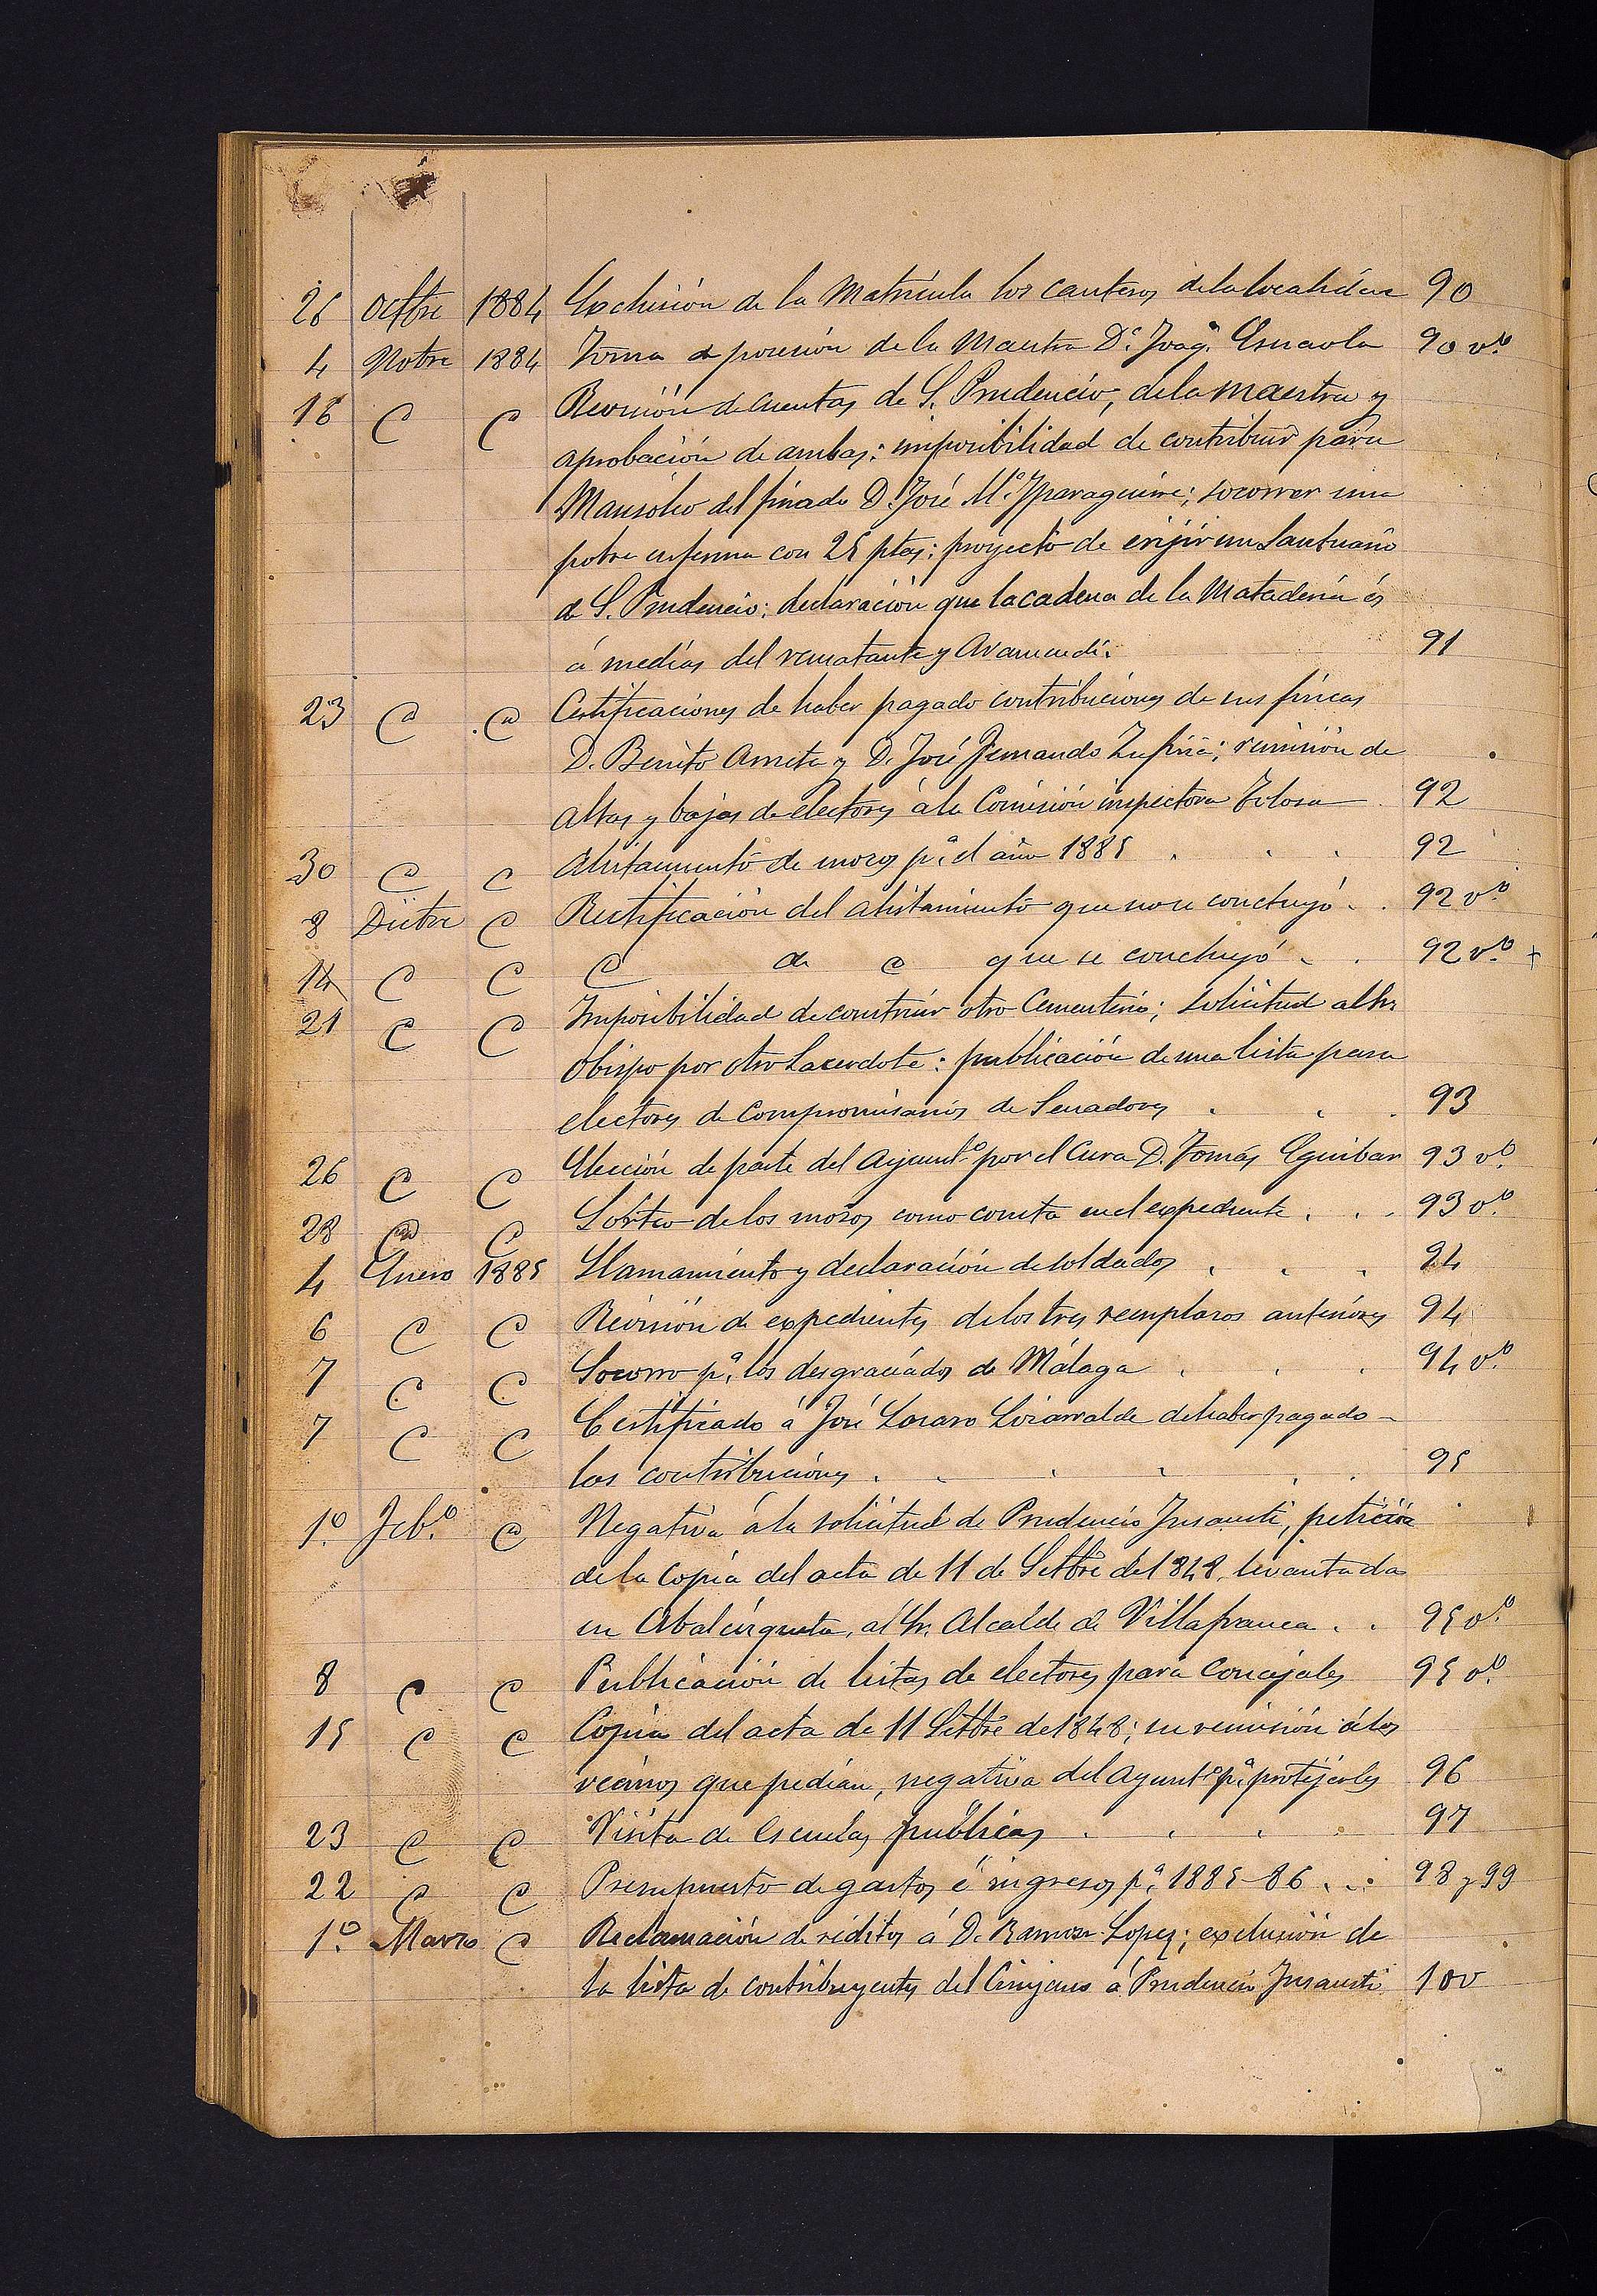 26 Octbre 1884 Exclusión de la Matrícula los canteros de la localidad 90
4 Nobre 1884 Toma de posesión de la Maestra D.ª Joaq.ª Esnaola 90 v.to
16 C C Revisión de cuentas de S. Prudencio, de la maestra y
aprobación de ambas: imposibilidad de contribuir para
Mausoleo del finado D. José M.ª Yparaguirre; socorrer una
pobre enferma con 25 ptas; proyecto de erijir un Santuario
de S. Prudencio: declaración que la cadena de la Matadería és
á medias del rematante y Aramendi. 91
23 C C Certificaciones de haber pagado contribuciones de sus fincas
D. Benito Arreta y D. José Fernando Zufiria; remisión de
altas y bajas de electores á la Comisión inspectora Tolosa 92
30 C C Alistamiento de mozos p.ª el año 1885 . . . 92
8 Dicbre C Rectificación del alistamiento que no se concluyó . . 92 v.to
14 C C C de C que se concluyó . . 92 v.to +
21 C C Imposibilidad de construir otro Cementerio; solicitud al Sr.
Obispo por otro Sacerdote: publicación de una lista para
electores de Compromisarios de Senadores . . . 93
26 C C Elección de parte del Ayunt.º por el Cura D. Tomás Eguibar 93 v.to
28 C C Sorteo de los mozos como consta en el expediente . . . 93 v.to
4 Enero 1885 Llamamiento y declaración de soldados . . . 94
6 C C Revisión de expedientes de los tres reemplazos anteriores 94
7 C C Socorro p.ª los desgraciados de Málaga . . . 94 v.to
7 C C Certificado á José Lázaro Loizarralde de haber pagado
las contribuciones . . . . . . 95
1.º Feb.º C Negativa á la solicitud de Prudencio Insausti, petición
de la copia del acta de 11 de Setbre de 1848, levantada
en Abalcizqueta, al Sr. Alcalde de Villafranca . . 95 v.to
8 C C Publicación de listas de electores para Concejales 95 v.to
15 C C Copia del acta de 11 Setbre de 1848; su remisión á los
vecinos que pedían, negativa del Ayunt.º p.ª protejerles 96
23 C C Visita de Escuelas públicas . . . . 97
22 C C Presupuesto de gastos é ingresos p.ª 1885-86 . . . 98 y 99
1.º Marzo C Reclamación de réditos á D. Ramon Lopez; exclusión de
la lista de contribuyentes del Cirujano á Prudencio Insausti 100